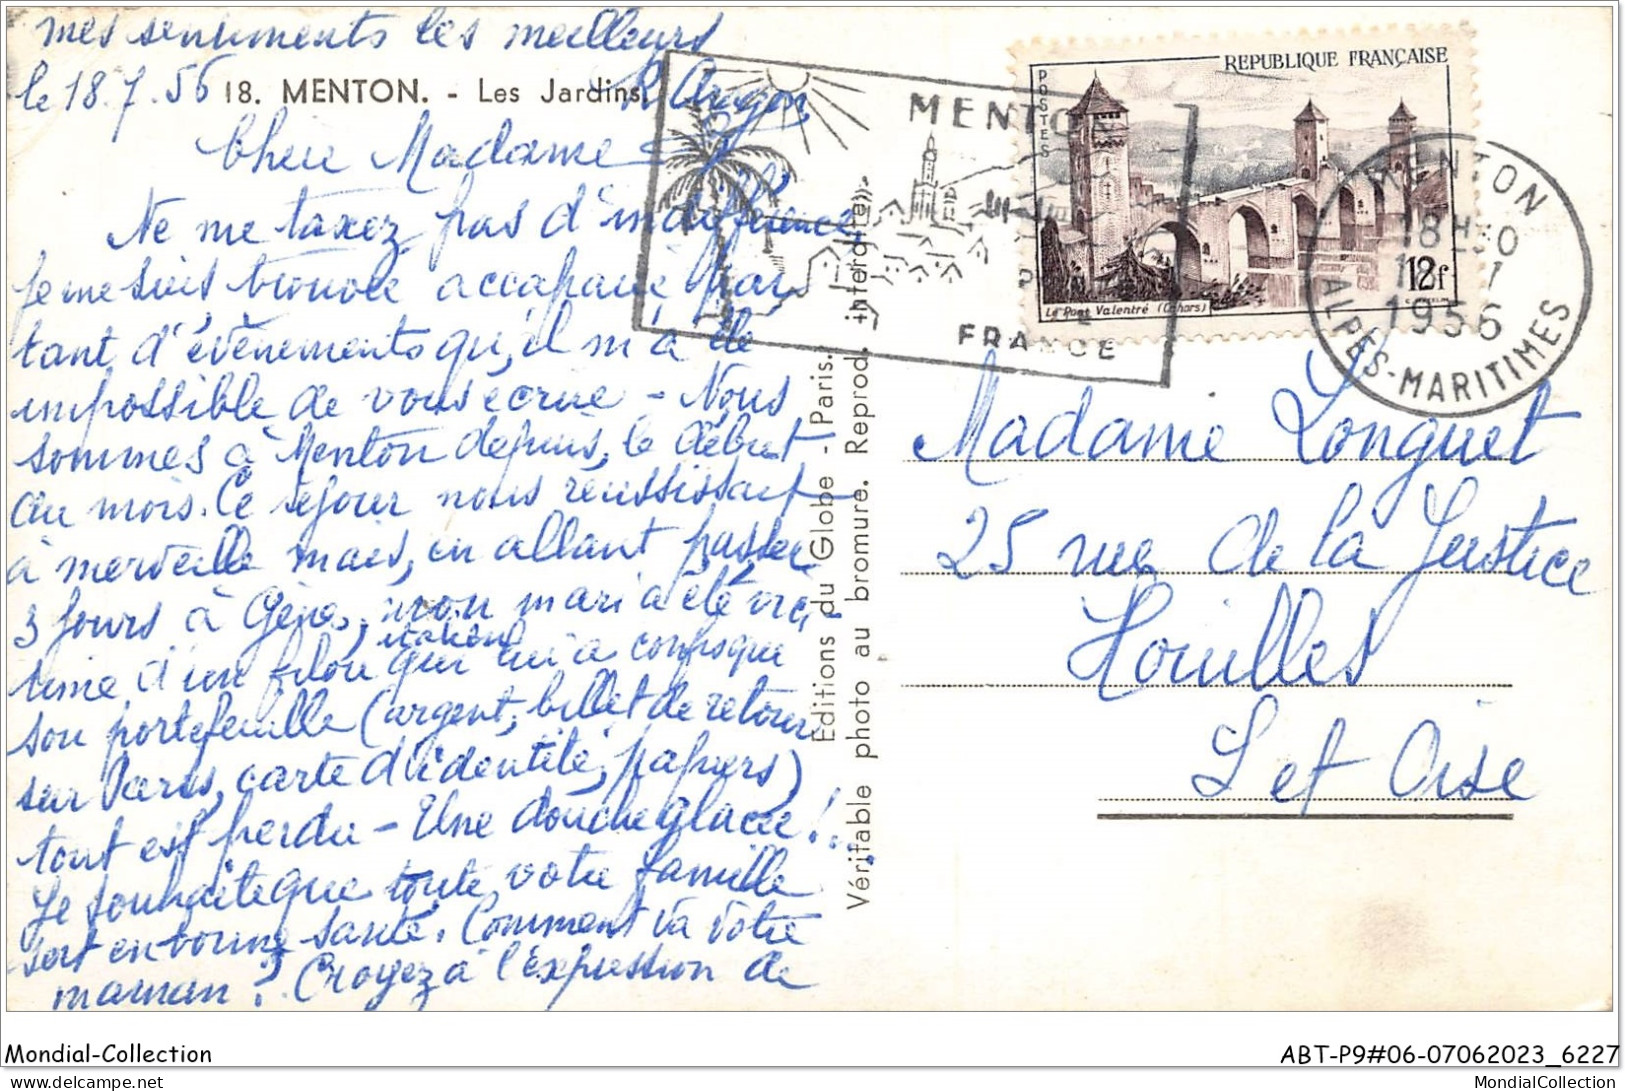 mes sentiments les meilleurs
le 18.7.56
18. MENTON. - Les Jardins.
Chère Madame
Ne me taxez pas d'indifférence,
Je me suis trouvée accaparée par
tant d'évènements qu'il m'a été
impossible de vous écrire - Nous
sommes à Menton depuis le début
du mois. Ce séjour nous réussissait
à merveille mais, en allant passer
3 jours à Gênes, mon mari a été vic-
time d'un filou italien qui lui a confisqué
son portefeuille (argent, billet de retour
sur Paris, carte d'identité, papiers)
tout est perdu - Une douche glacée !..
Je souhaite que toute votre famille
soit en bonne santé. Comment va votre
maman ? Croyez à l'expression de
Éditions du Globe - Paris.
Véritable photo au bromure. Reprod. interdite
MENTON
FRANCE
REPUBLIQUE FRANÇAISE
POSTES
Le Pont Valentré (Cahors)
12f
MENTON
1956
ALPES-MARITIMES
Madame Longuet
25 rue de la Justice
Houilles
S et Oise
Mondial-Collection
ABT-P9#06-07062023_6227
delcampe.net
MondialCollection